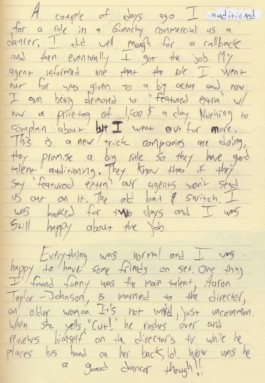 A couple of days ago I auditioned
for a role in a Givenchy commercial as a
dancer, I did well enough for a callback
and then eventually I got the job. My
agent informed me that the role I went
out for was given to a big actor and now
I am being demoted to "featured extra" w/
now a prize tag of 500 $ a day. Nothing to
complain about but I went out for more.
This is a new trick companies are doing,
they promise a big role so they have good
talent auditioning. They know that if they
say featured extra our agents won't send
us out on it. The old bait & switch. I
was booked for two days and I was
still happy about the job.
Everything was normal and I was
happy to have some friends on set. One thing
I found funny was the main talent, Aaron
Taylor-Johnson, is married to the director,
an older woman. It's not weird, just uncommon.
When she yells "Cut!" he rushes over and
reviews himself on the director's tv while he
places his hand on her back, lol. Now was he
a good dancer though!!